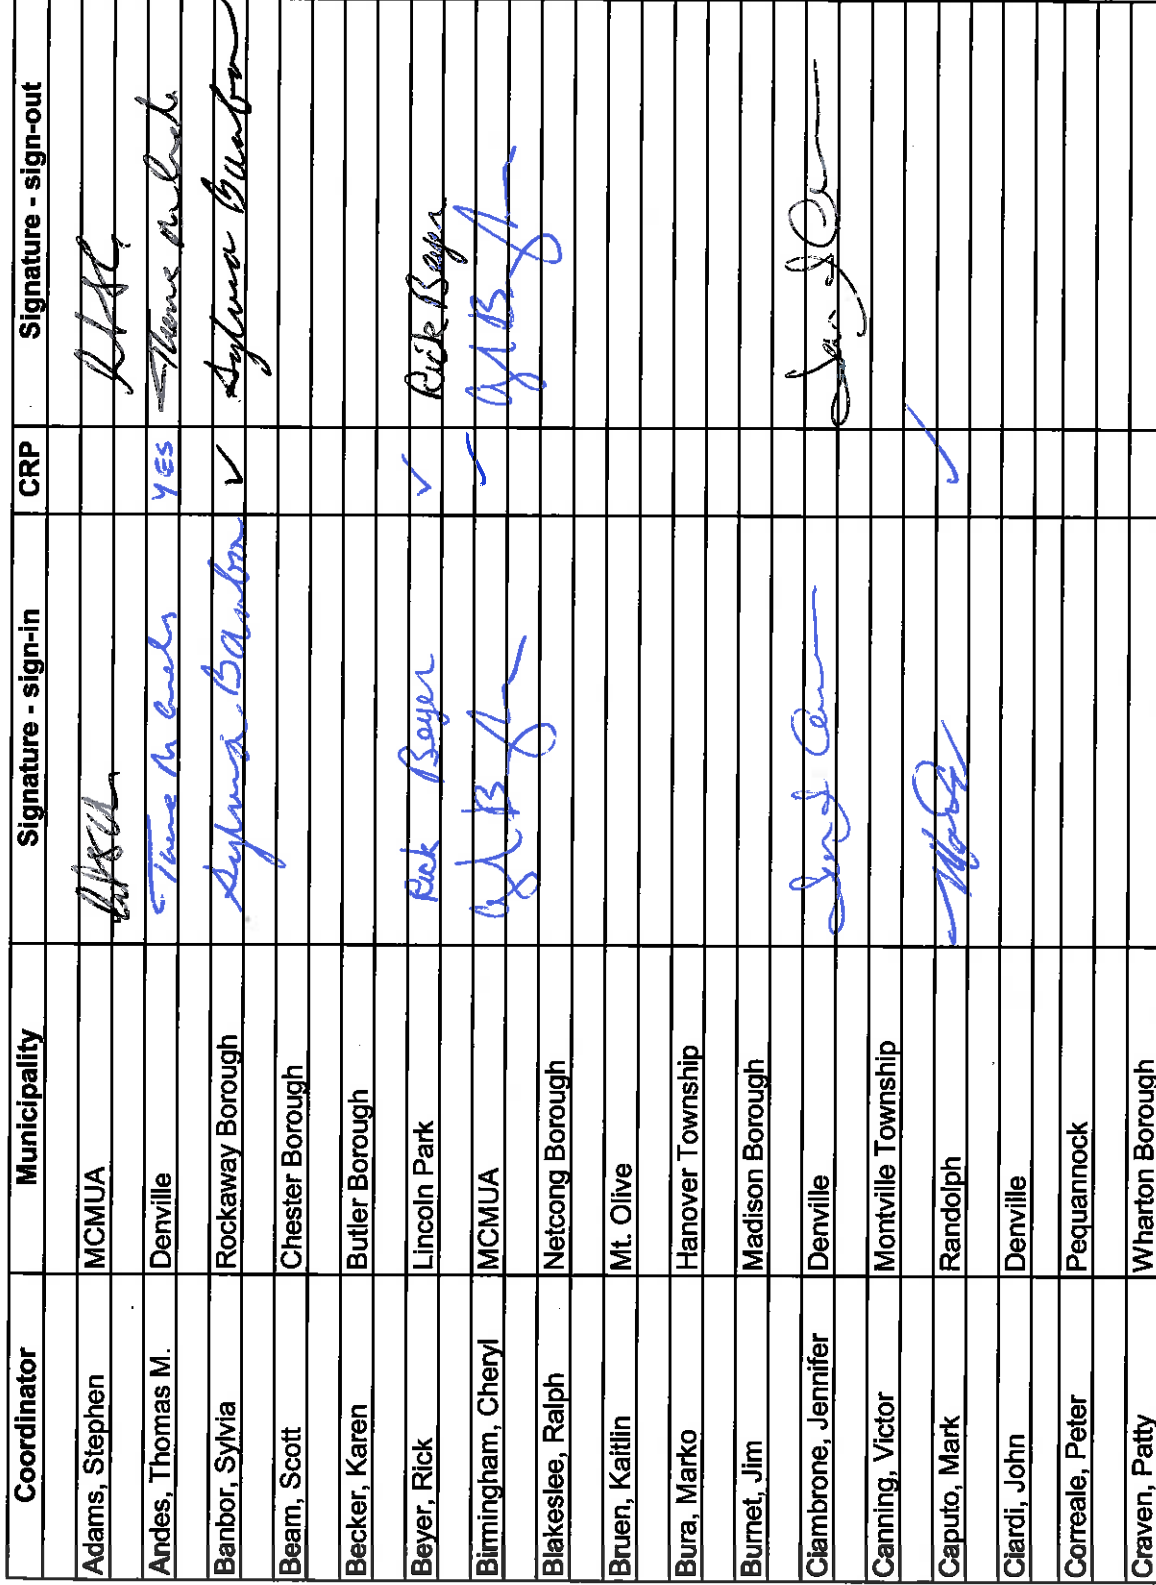 Coordinator Municipality Signature - sign-in CRP Signature - sign-out
Adams, Stephen MCMUA
Andes, Thomas M. Denville YES
Banbor, Sylvia Rockaway Borough Sylvia Banbor ✓ Sylvia Banbor
Beam, Scott Chester Borough
Becker, Karen Butler Borough
Beyer, Rick Lincoln Park Rick Beyer ✓ Rick Beyer
Birmingham, Cheryl MCMUA ✓
Blakeslee, Ralph Netcong Borough
Bruen, Kaitlin Mt. Olive
Bura, Marko Hanover Township
Burnet, Jim Madison Borough
Ciambrone, Jennifer Denville
Canning, Victor Montville Township
Caputo, Mark Randolph ✓
Ciardi, John Denville
Correale, Peter Pequannock
Craven, Patty Wharton Borough